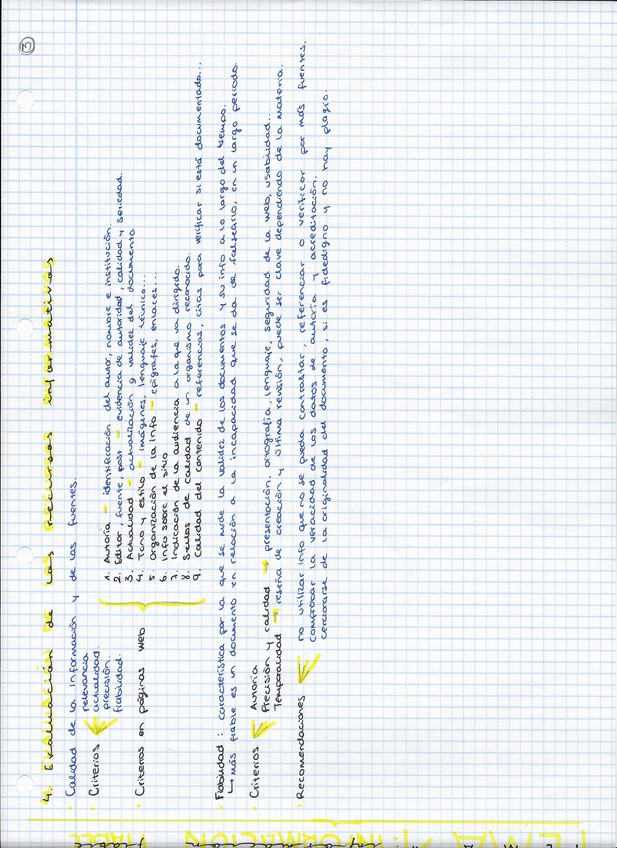 3
4. Evaluación de las recursos informativas
· Calidad de la información y de las fuentes.
· Criterios
relevancia
actualidad
precisión.
fiabilidad.
· Criterios en páginas web
1. Autoría – identificación del autor, nombre e institución.
2. Editor, fuente, país – evidencia de autoridad, calidad y seriedad.
3. Actualidad – actualización y validez del documento
4. Tono y estilo – imágenes, lenguaje técnico...
5. Organización de la info – epígrafes, enlaces...
6. Info sobre el sitio
7. Indicación de la audiencia a la que va dirigido.
8. Sellos de calidad de un organismo reconocido.
9. Calidad del contenido – referencias, citas para verificar si está documentado...
· Fiabilidad: característica por la que se mide la validez de los documentos y su info a lo largo del tiempo.
↳ más fiable es un documento en relación a la incapacidad que se da de falsearlo, en un largo periodo.
· Criterios
Autoría
Precisión y calidad → presentación, ortografía, lenguaje, seguridad de la web, usabilidad...
Temporalidad → reseña de creación y última revisión, puede ser clave dependiendo de la materia.
· Recomendaciones
no utilizar info que no se pueda contrastar, referenciar o verificar por más fuentes.
comprobar la veracidad de los datos de autoría y acreditación.
cerciorarse de la originalidad del documento, si es fidedigno y no hay plagio.